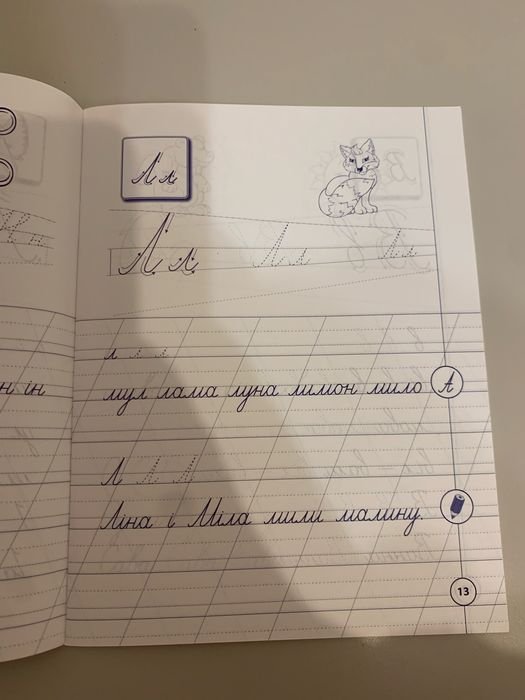 Лл
Лл Лл Лл
л л л
н ін
мул лама луна лимон мило
А
Л Л Л
Ліна і Міла мили малину.
13